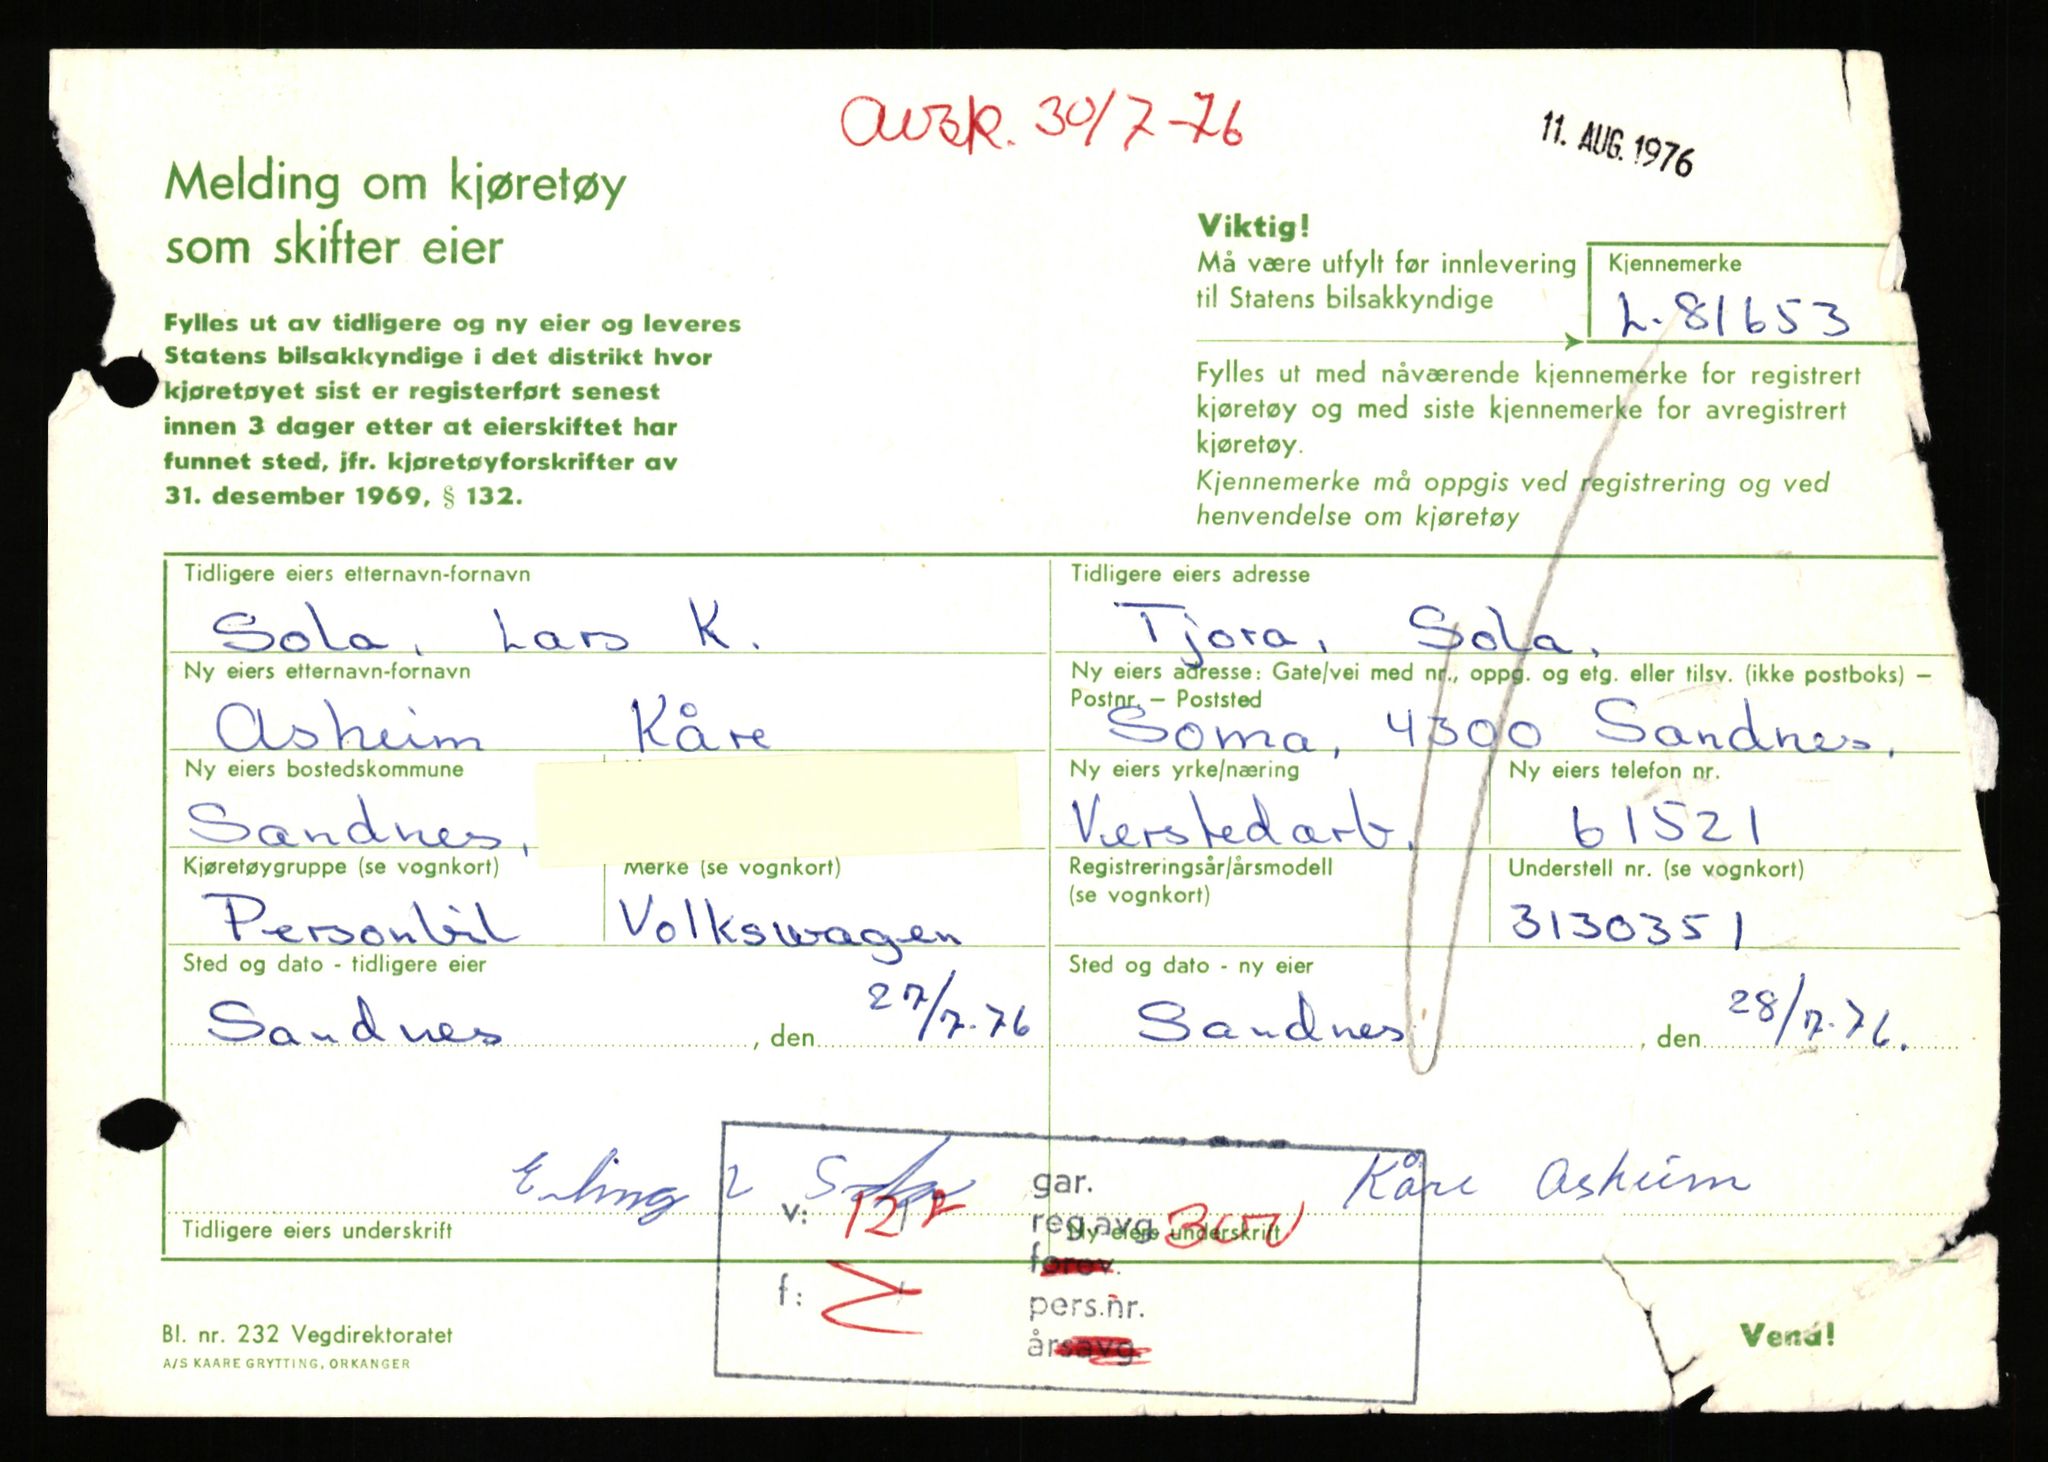 avsk. 30/7-76
11. AUG. 1976
Melding om kjøretøy
som skifter eier
Fylles ut av tidligere og ny eier og leveres
Statens bilsakkyndige i det distrikt hvor
kjøretøyet sist er registerført senest
innen 3 dager etter at eierskiftet har
funnet sted, jfr. kjøretøyforskrifter av
31. desember 1969, § 132.
Viktig!
Må være utfylt før innlevering
til Statens bilsakkyndige
Kjennemerke
L-81653
Fylles ut med nåværende kjennemerke for registrert
kjøretøy og med siste kjennemerke for avregistrert
kjøretøy.
Kjennemerke må oppgis ved registrering og ved
henvendelse om kjøretøy
Tidligere eiers etternavn-fornavn
Sola, Lars K.
Tidligere eiers adresse
Tjora, Sola.
Ny eiers etternavn-fornavn
Asheim Kåre
Ny eiers adresse: Gate/vei med nr., oppg. og etg. eller tilsv. (ikke postboks) –
Postnr. – Poststed
Soma, 4300 Sandnes.
Ny eiers bostedskommune
Sandnes,
Ny eiers yrke/næring
Verstedarb.
Ny eiers telefon nr.
61521
Kjøretøygruppe (se vognkort)
Personbil
Merke (se vognkort)
Volkswagen
Registreringsår/årsmodell
(se vognkort)
Understell nr. (se vognkort)
3130351
Sted og dato - tidligere eier
Sandnes, den 27/7-76
Sted og dato - ny eier
Sandnes, den 28/7-76.
Erling Sola
Kåre Asheim
Tidligere eiers underskrift
Ny eiers underskrift
v:
gar.
reg.avg. 300
forev.
f:
pers.nr.
årsavg.
Bl. nr. 232 Vegdirektoratet
A/S KAARE GRYTTING, ORKANGER
Vend!